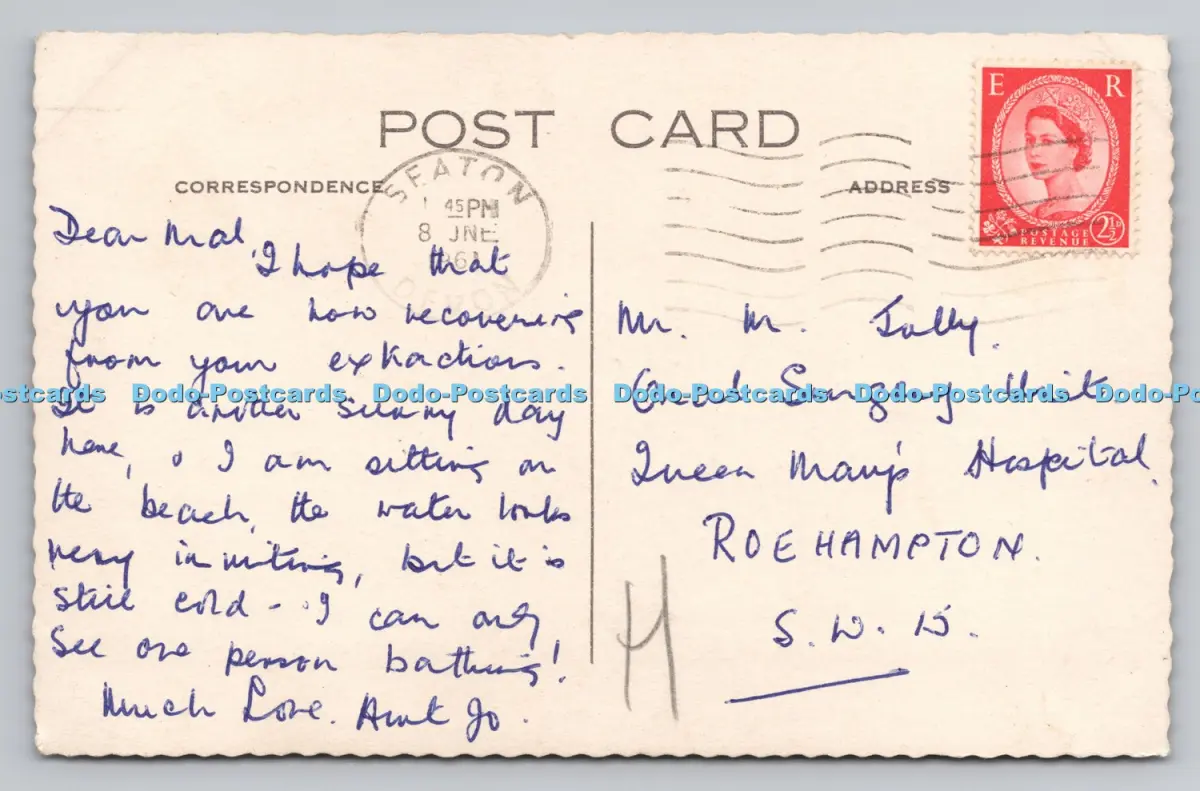 POST CARD
CORRESPONDENCE
ADDRESS
SEATON
45 PM
8 JNE
DEVON
E R
POSTAGE
REVENUE
2½
Dear Mal,
I hope that
you are now recovering
from your extractions.
It is another sunny day
here, & I am sitting on
the beach, the water looks
very inviting, but it is
still cold - I can only
see one person bathing!
Much Love. Aunt Jo.
Mr. M. Jolly.
Oral Surgery Unit
Queen Mary's Hospital,
ROEHAMPTON.
S. W. 15.
H
Dodo-Postcards Dodo-Postcards Dodo-Postcards Dodo-Postcards Dodo-Postcards